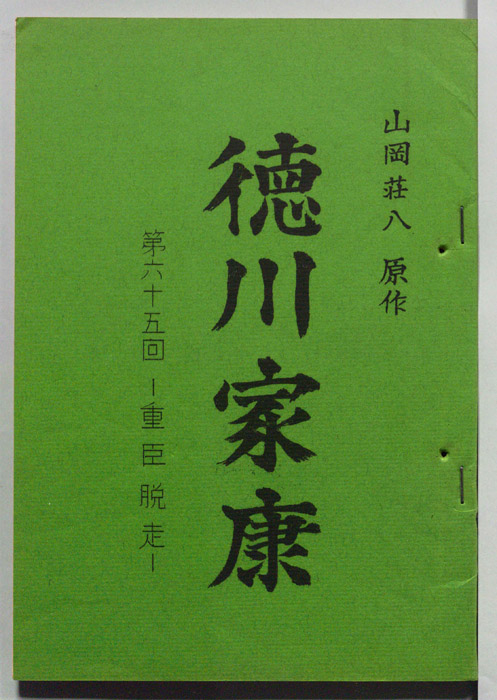 山岡荘八 原作
徳川家康
第六十五回 ー重臣脱走ー